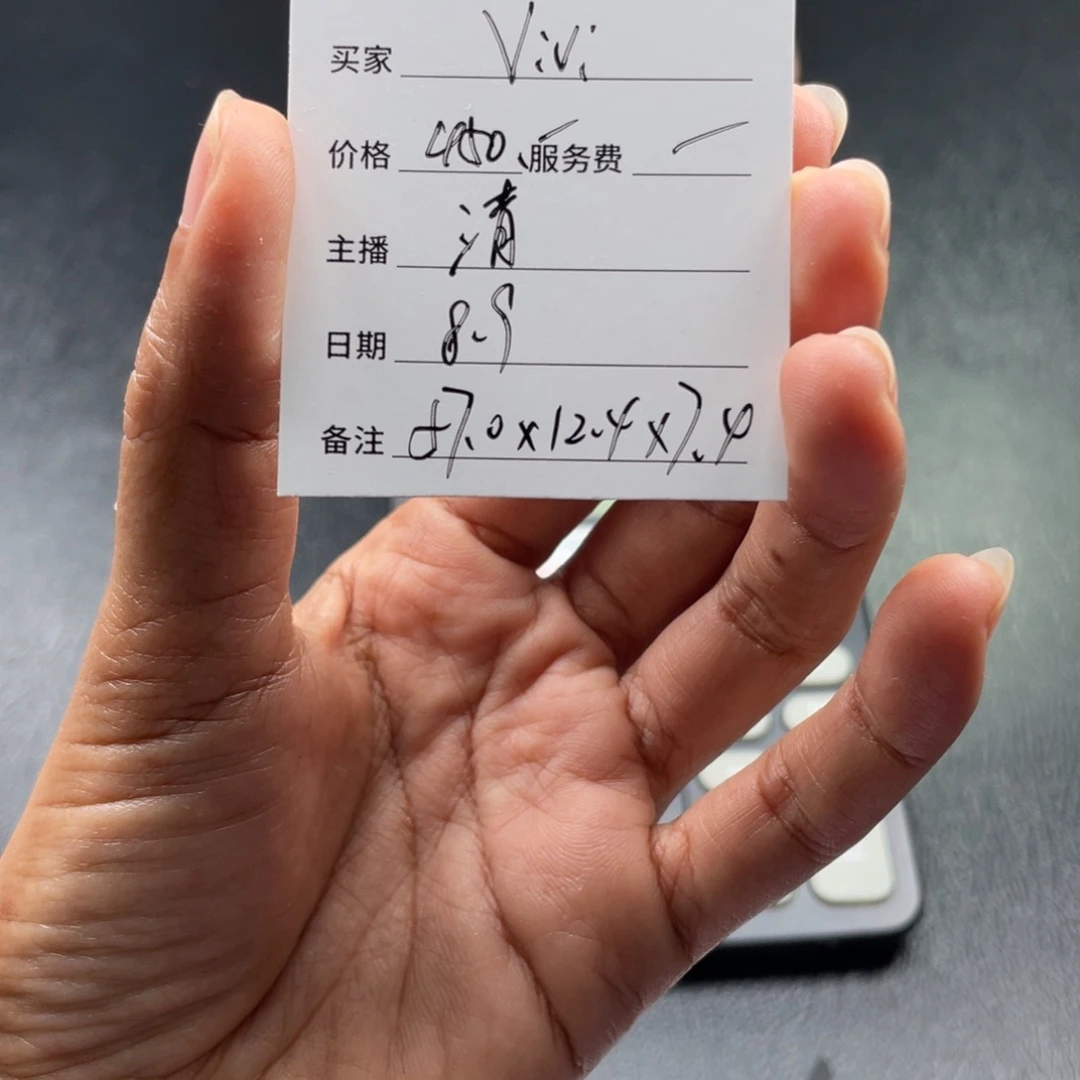 买家 ViVi
价格 服务费
主播 清
日期 8.9
备注 57.0x12.4x7.4